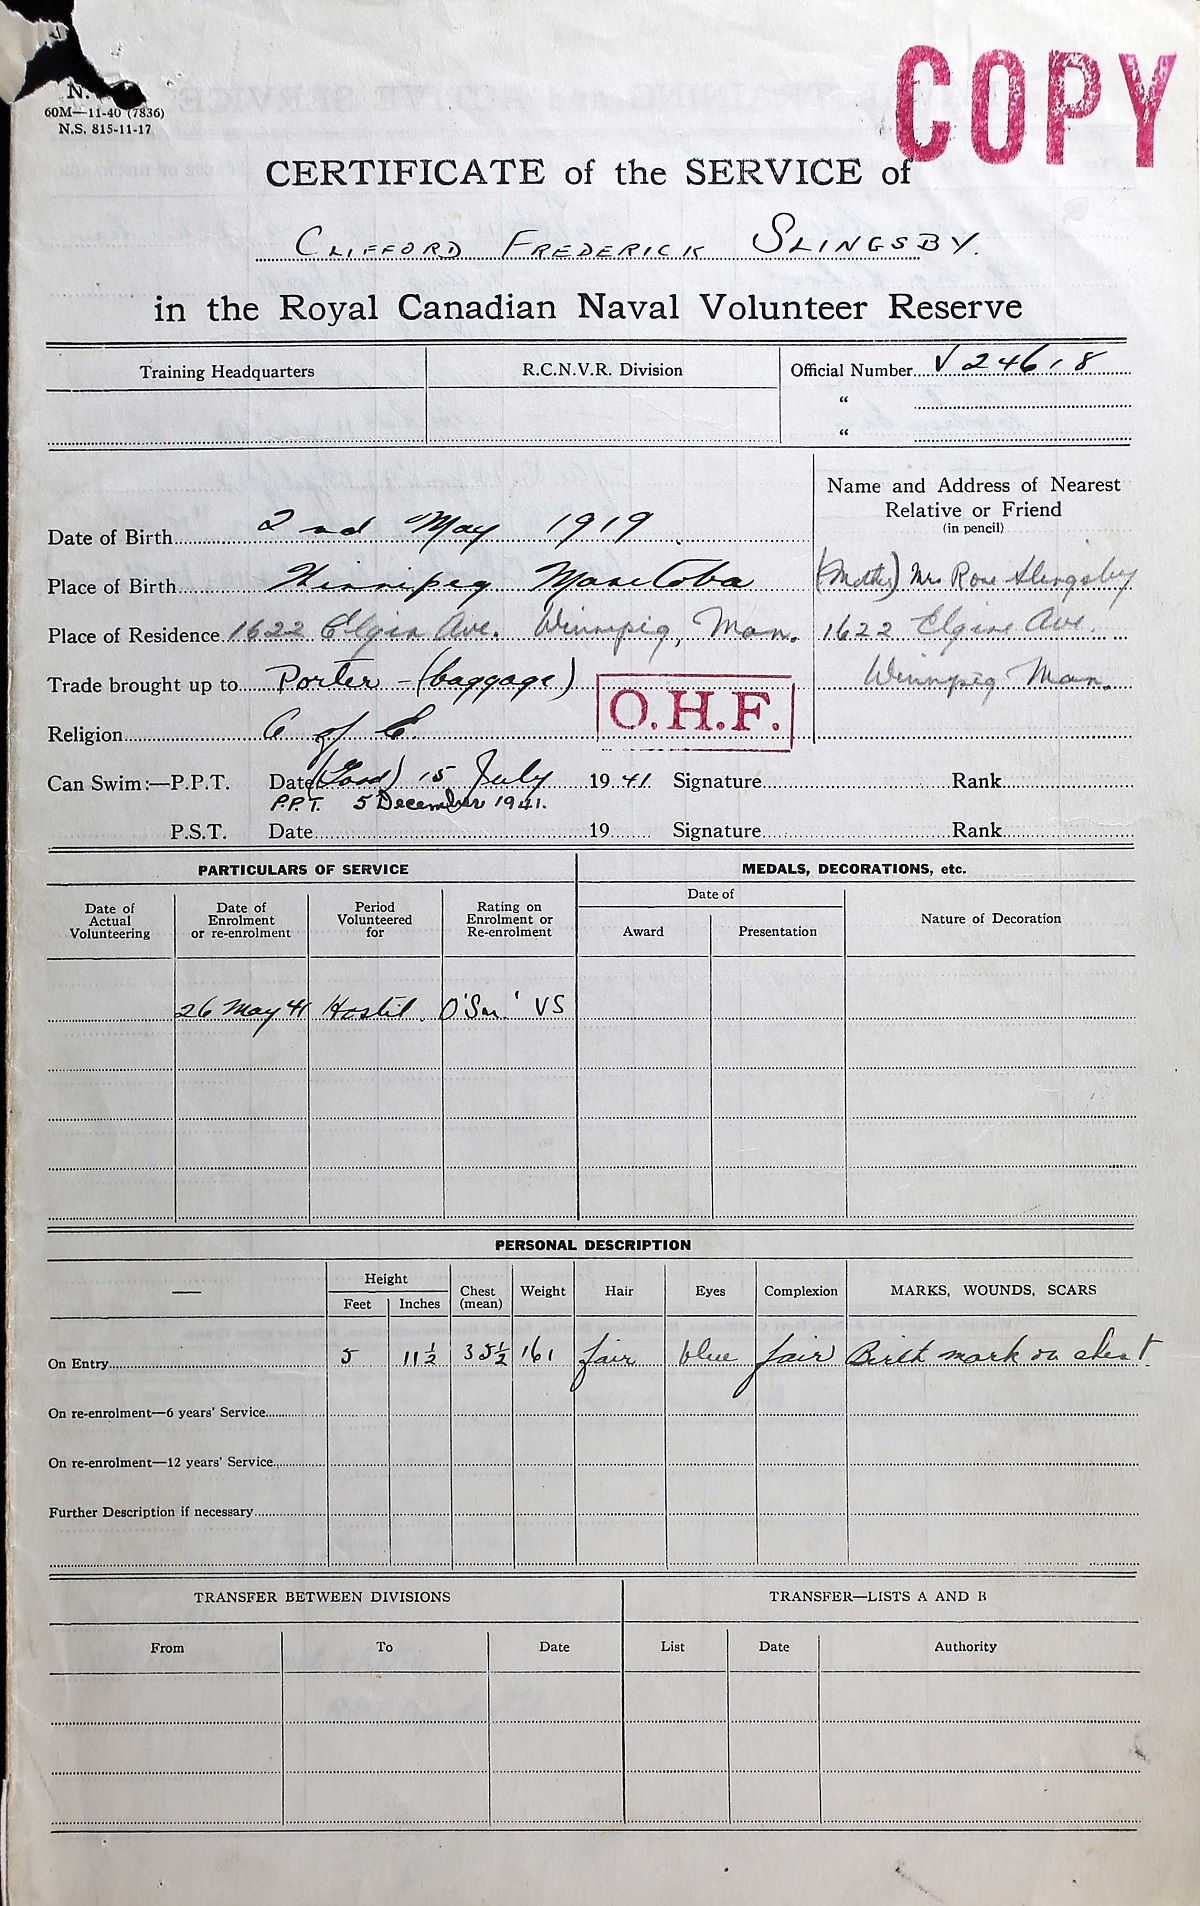 COPY
N.
60M—11-40 (7836)
N.S. 815-11-17
CERTIFICATE of the SERVICE of
CLIFFORD FREDERICK SLINGSBY.
in the Royal Canadian Naval Volunteer Reserve
Training Headquarters R.C.N.V.R. Division Official Number V 24618
“
“
Name and Address of Nearest
Relative or Friend
(in pencil)
Date of Birth 2nd May 1919
Place of Birth Winnipeg Manitoba (Mother) Mrs Rose Slingsby
Place of Residence 1622 Elgin Ave. Winnipeg, Man. 1622 Elgin Ave.
Trade brought up to Porter - (baggage) Winnipeg Man.
O.H.F.
Religion C of E
Can Swim:—P.P.T. Date (Good) 15 July 1941 Signature Rank
P.P.T. 5 December 1941.
P.S.T. Date 19 Signature Rank
PARTICULARS OF SERVICE MEDALS, DECORATIONS, etc.
Date of Actual Volunteering Date of Enrolment or re-enrolment Period Volunteered for Rating on Enrolment or Re-enrolment Date of Award Presentation Nature of Decoration
26 May 41 Hostil. O'Sea.' VS
PERSONAL DESCRIPTION
— Height Feet Inches Chest (mean) Weight Hair Eyes Complexion MARKS, WOUNDS, SCARS
On Entry 5 11½ 35½ 161 fair blue fair Birth mark on chest.
On re-enrolment—6 years' Service
On re-enrolment—12 years' Service
Further Description if necessary
TRANSFER BETWEEN DIVISIONS TRANSFER—LISTS A AND B
From To Date List Date Authority